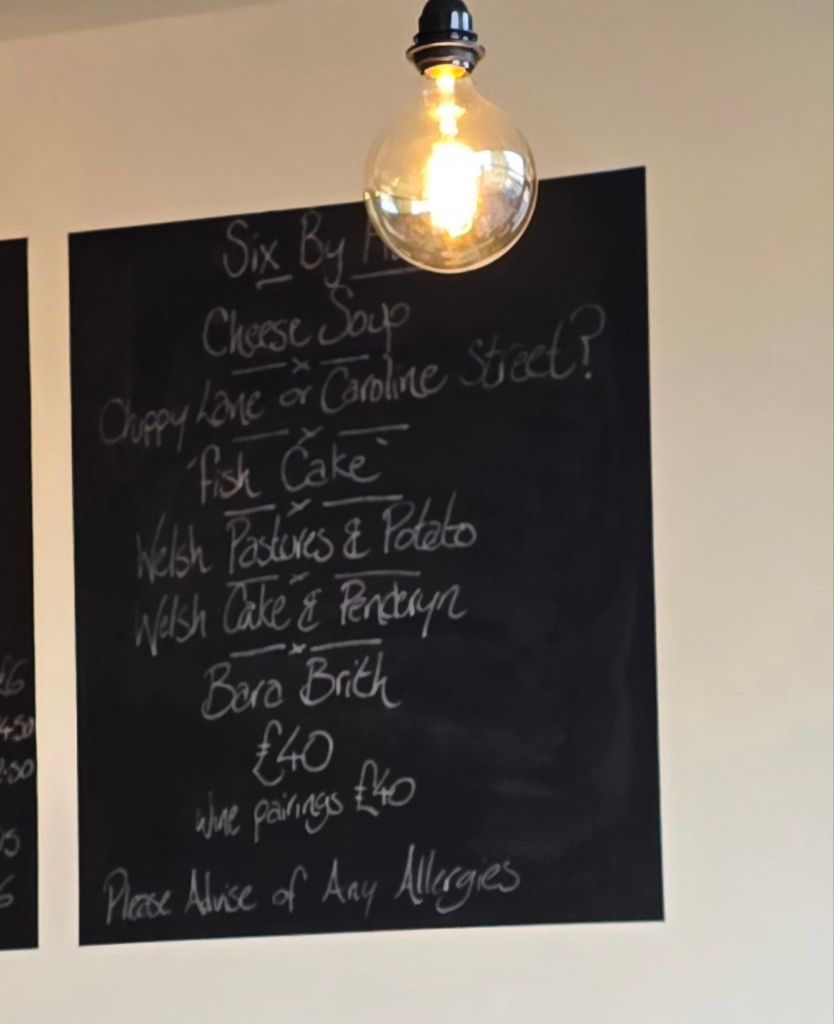 Six By
Cheese Soup
Chippy Lane or Caroline Street?
'Fish Cake'
Welsh Pastures & Potato
Welsh Cake & Penderyn
Bara Brith
£40
wine pairings £40
Please Advise of Any Allergies
£6
4.50